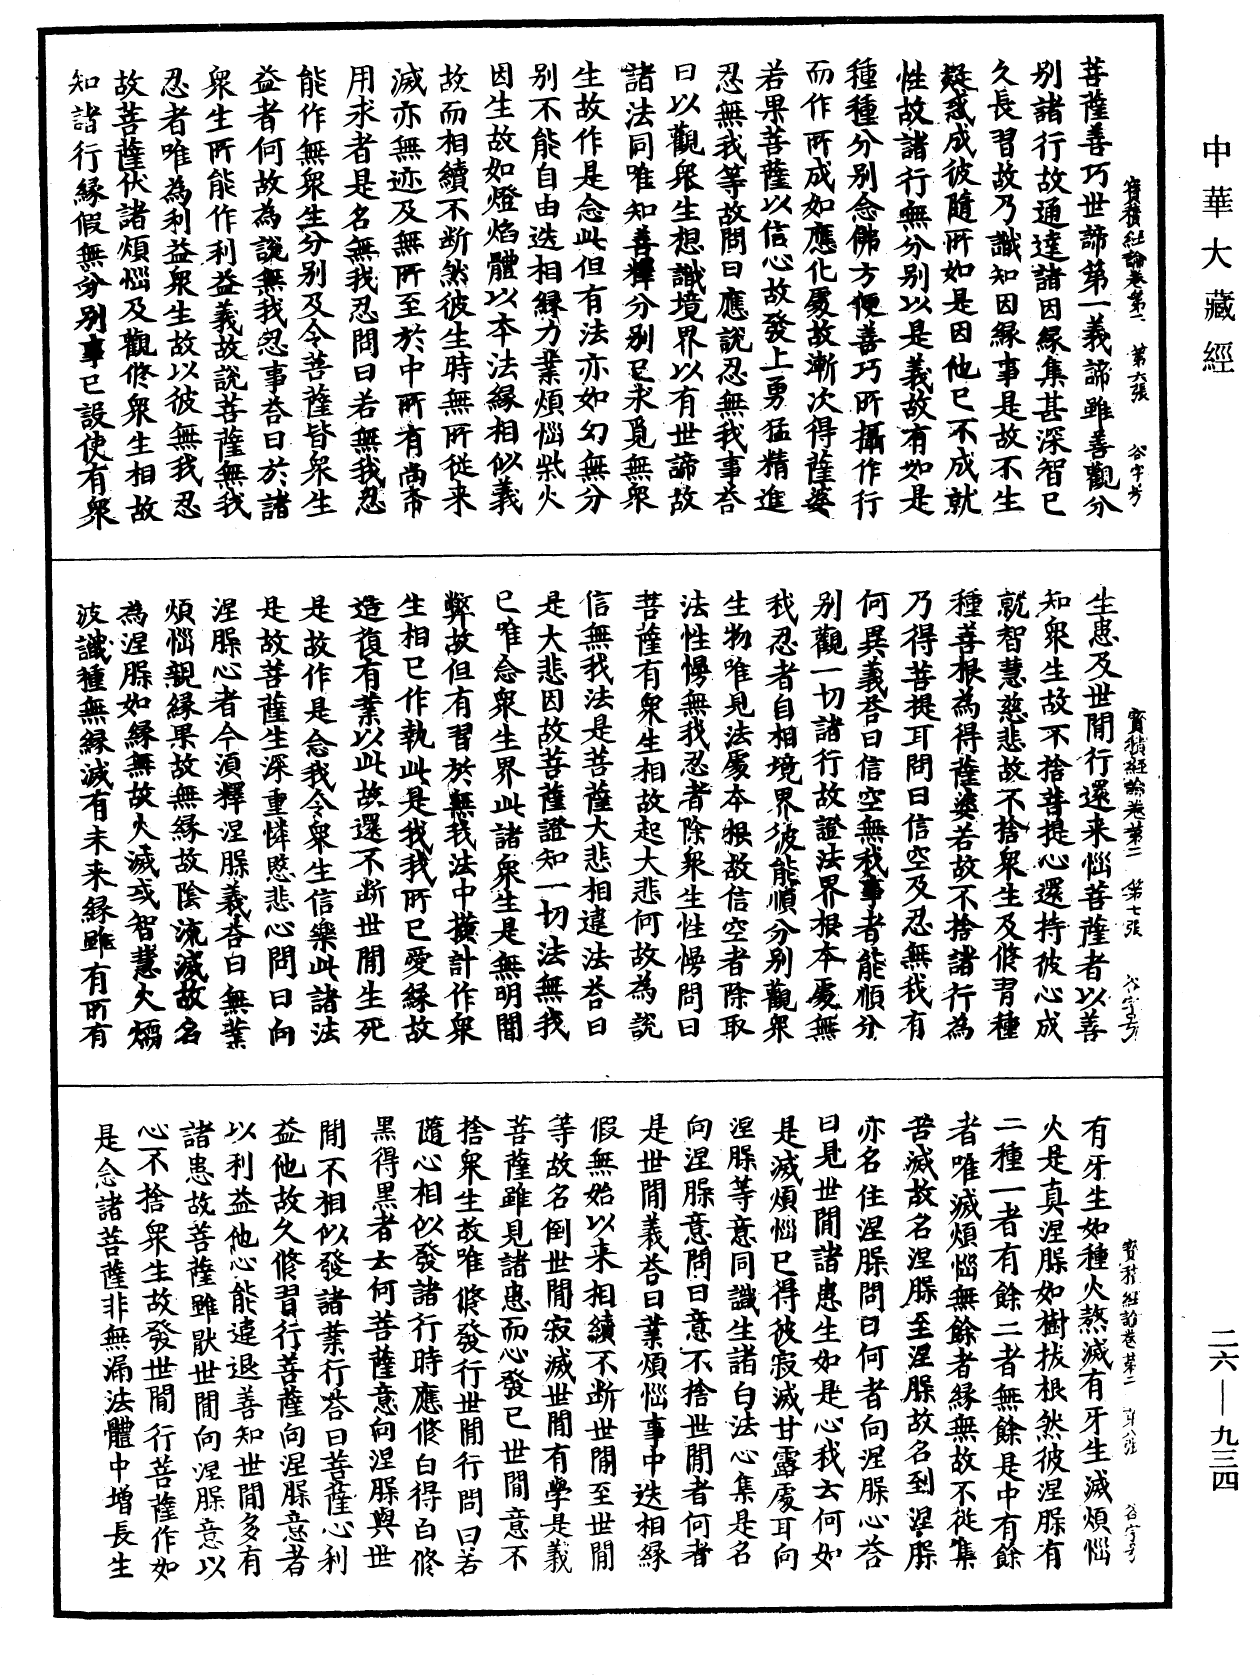 中華大藏經
寶積經論卷第二　第六張　谷字号
菩薩善巧世諦第一義諦雖善觀分
别諸行故通達諸因緣集甚深智已
久長習故乃識知因緣事是故不生
疑惑成彼隨所如是因他已不成就
性故諸行無分别以是義故有如是
種種分别念佛方便善巧所攝作行
而作所成如應化處故漸次得薩婆
若果菩薩以信心故發上勇猛精進
忍無我等故問曰應說忍無我事荅
曰以觀衆生想識境界以有世諦故
諸法同唯知善釋分别已求覓無衆
生故作是念此但有法亦如幻無分
别不能自由迭相緣力業煩惱柴火
因生故如燈焰體以本法緣相似義
故而相續不断然彼生時無所從来
滅亦無迹及無所至於中所有尚希
用求者是名無我忍問曰若無我忍
能作無衆生分别及令菩薩皆衆生
益者何故為說無我忍事荅曰於諸
衆生所能作利益義故說菩薩無我
忍者唯為利益衆生故以彼無我忍
故菩薩伏諸煩惱及觀修衆生相故
知諸行緣假無分别事已設使有衆
寶積經論卷第二　第七張　谷字号
生患及世間行還来惱菩薩者以善
知衆生故不捨菩提心還持彼心成
就智慧慈悲故不捨衆生及修習種
種善根為得薩婆若故不捨諸行為
乃得菩提耳問曰信空及忍無我有
何異義荅曰信空無我事者能順分
别觀一切諸行故證法界根本處無
我忍者自相境界彼能順分别觀衆
生物唯見法處本根故信空者除取
法性慢無我忍者除衆生性慢問曰
菩薩有衆生相故起大悲何故為說
信無我法是菩薩大悲相違法荅曰
是大悲因故菩薩證知一切法無我
已唯念衆生界此諸衆生是無明闇
弊故但有習於無我法中横計作衆
生相已作執此是我我所已愛緣故
造復有業以此故還不断世間生死
是故作是念我令衆生信樂此諸法
是故菩薩生深重憐愍悲心問曰向
涅槃心者今須釋涅槃義荅曰無業
煩惱親緣果故無緣故陰流滅故名
為涅槃如緣無故火滅或智慧火燸
彼識種無緣滅有未来緣雖有所有
寶積經論卷第二　第八張　谷字号
有牙生如種火熬滅有牙生滅煩惱
火是真涅槃如樹拔根然彼涅槃有
二種一者有餘二者無餘是中有餘
者唯滅煩惱無餘者緣無故不從集
苦滅故名涅槃至涅槃故名到涅槃
亦名住涅槃問曰何者向涅槃心荅
曰見世間諸患生如是心我云何如
是滅煩惱已得彼寂滅甘露處耳向
涅槃等意同識生諸白法心集是名
向涅槃意問曰意不捨世間者何者
是世間義荅曰業煩惱事中迭相緣
假無始以来相續不断世間至世間
等故名倒世間寂滅世間有學是義
菩薩雖見諸患而心發已世間意不
捨衆生故唯修發行世間行問曰若
隨心相似發諸行時應修白得白修
黑得黑者云何菩薩意向涅槃與世
間不相似發諸業行荅曰菩薩心利
益他故久修習行菩薩向涅槃意者
以利益他心能違退善知世間多有
諸患故菩薩雖猒世間向涅槃意以
心不捨衆生故發世間行菩薩作如
是念諸菩薩非無漏法體中增長生
二六—九三四